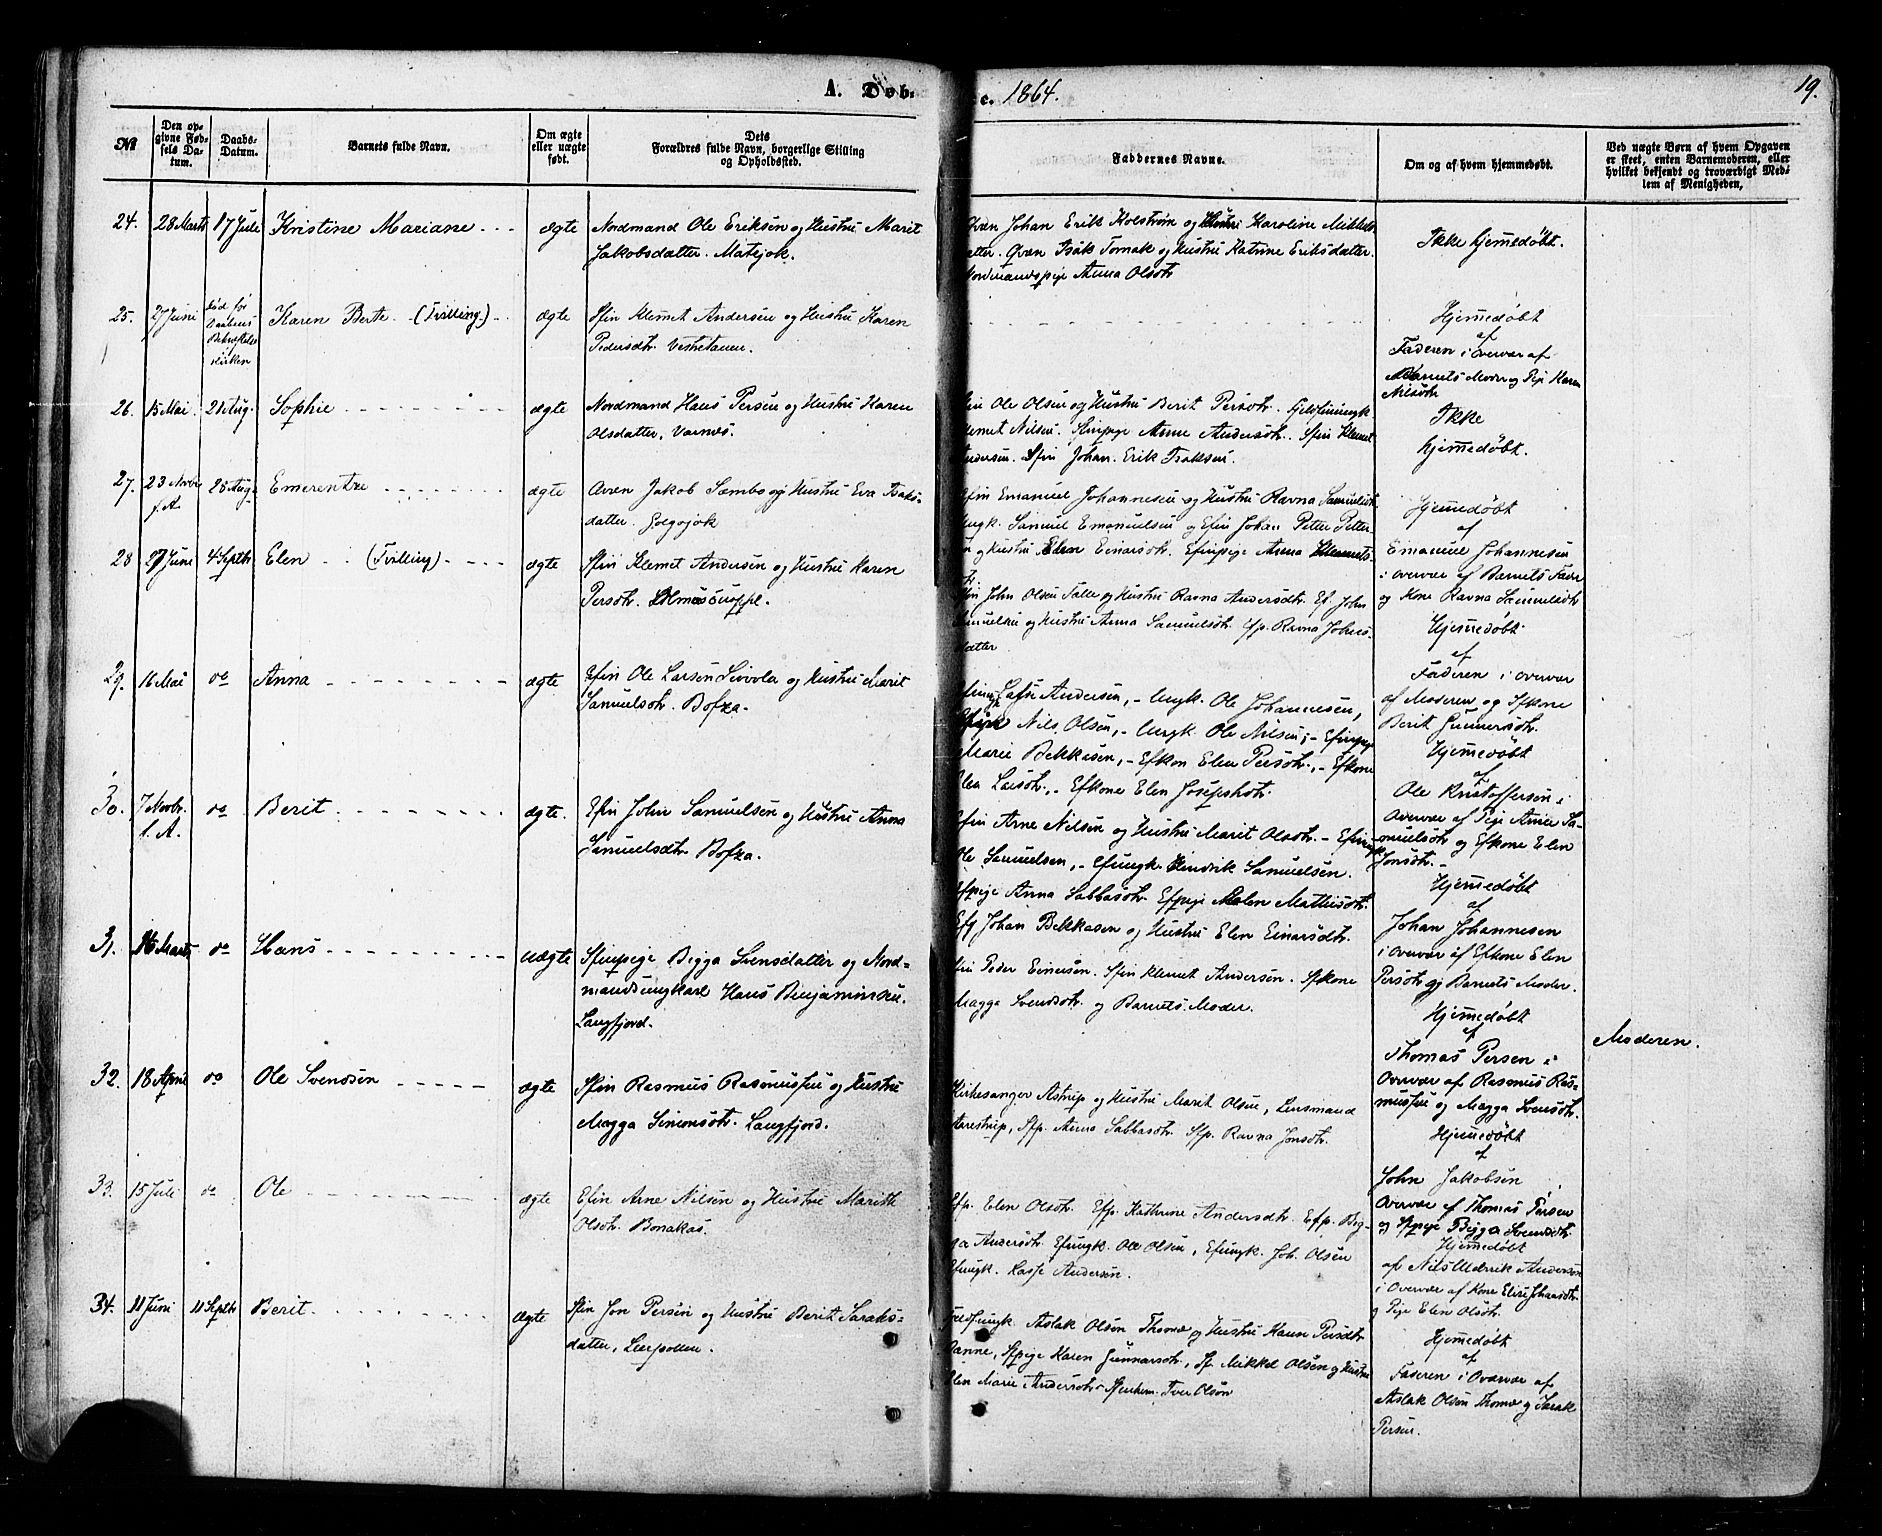 A. Døb. e. 1864. 19.
№
Den op-
givne Fød-
sels Da-
tum.
Daabs-
Datum.
Barnets fulde Navn.
Om ægte
eller uægte
født.
Dets
Forældres fulde Navn, borgerlige Stilling
og Opholdssted.
Faddernes Navne.
Om og af hvem hjemmedøbt.
Ved uægte Børn af hvem Opgaven
er skeet, enten Barnemoderen, eller
hvilket bekjendt og troværdigt Med-
lem af Menigheden,
24. 28 Marts 17 Juli Kristine Mariane ægte
Nordmand Ole Eriksen og Hustru Marit
Jakobsdatter. Matejok.
Johan Erik Kolstrøm og Hustru Karoline Mikkels
atter. Qvæn Isak Tomak og Hustru Katrine Eriksdatter.
Nordmandspige Anna Olsdtr
Ikke hjemedøbt.
25. 27 Juni
død før
Daabens
Bekræftelse
Kirken
Karen Berte (Tvilling) ægte
Sfin Klemet Andersen og Hustru Karen
Pedersdtr. Vestretanen.
Hjemedøbt
af
Faderen i overvær af
Barnets Moder og Pige Karen
Nilsdtr
26. 15 Mai. 21 Aug. Sophie ægte
Nordmand Hans Persen og Hustru Karen
Olsdatter, Varnæs.
fin Ole Olsen og Hustru Berit Persdtr.
lemet Nilsen. Sfinpige Anne Andersdtr. Sfin Klemet
Andersen. Sfin Johan Erik Isaksen.
Ikke
hjemedøbt.
27. 23 Novbr
f. A.
28 Aug. Emerentze ægte
Qvæn Jakob Sambo og Hustru Eva Isaks-
datter. Golgojok
Efin Emanuel Johannesen og Hustru Ravna Samuelsdtr
Ungk. Samuel Emanuelsen og Efin Johan Petter Petter
n og Hustru Elen Einarsdtr. Efinpige Anna Klemets-
Hjemedøbt
af
Emanuel Johannesen
i overvær af Barnets Fader
og Kone Ravna Samuelsdtr
28 27 Juni 4 Septbr Elen (Tvilling) ægte
Sfin Klemet Andersen og Hustru Karen
Persdtr.
fin John Olsen Talle og Hustru Ravna Andersdtr. Ef. John
Samuelsen og Hustru Anna Samuelsdtr. Efp. Ravna Johns-
datter
Hjemedøbt
af
Faderen i overvær
af Moderen og Sfkone
Berit Gunnersdtr.
29. 16 Mai do Anna ægte
Efin Ole Larsen Sivvola og Hustru Marit
Samuelsdtr. Bofza.
Andersen, - Ungk. Ole Johannesen,
Nils Olsen, - Ungk. Ole Nilsen, - Efinpige
Marie Bekkasen, - Efkon Elen Persdtr., - Efkone
Elen Larsdtr., - Efkone Elen Josephsdtr.
Hjemedøbt
af
Ole Kristoffersen i
Overvær af Pige Anne Sa-
muelsdtr og Efkone Elen
Jonsdtr. -
30. 7 Novbr.
f. A.
do Berit ægte.
Efin John Samuelsen og Hustru Anna
Samuelsdtr. Bofza.
Efin Arne Nilsen og Hustru Marit Olsdtr. - Efinungk
Ole Samuelsen, - Efungk. Hindrik Samuelsen.
Efpige Anna Sabbasdtr. Efpige Malen Mathisdtr.
Hjemedøbt
af
Johan Johannesen
i overvær af Efkone Elen
Persdtr og Barnets Moder.
31. 16 Marts do Hans uægte
Sfinpige Bigga Svensdatter og Nord-
mandsungkarl Hans Binjaminsen.
Langfjord.
Efg Johan Bekkasen og Hustru Elen Einarsdtr.
fin Peder Einersen. Sfin Klemet Andersen. Sfkone
Magga Svendsdtr. og Barnets Moder.
Hjemedøbt
af
Thomas Persen i
Overvær af Rasmus Ras-
mussen og Magga Svensdtr.
Moderen.
32. 18 April do Ole Svendsen ægte
Sfin Rasmus Rasmussen og Hustru
Magga Simonsdtr. Langfjord.
Kirkesanger Astrup og Hustru Marit Olsen, Lensmand
Aarestrup, Sfp. Anna Sabbasdtr. Sfp. Ravna Jonsdtr.
Hjemedøbt
af
John Jakobsen
Overvær af Thomas Persen
og Sfpige Bigga Svendsdtr.
33. 15 Juli do Ole ægte
Efin Arne Nilsen og Hustru Marith
Olsdtr. Bonakas.
Efp. Elen Olsdtr. Efp. Kathrine Andersdtr. Efp. Big-
ga Andersdtr. Efungk. Ole Olsen, Efungk. Joh. Olsen
Efungk. Lasse Andersen.
Hjemedøbt
af Nils Henrik Andersen
i Overvær af Kone Elise Johansdtr
og Pige Elen Olsdtr.
34. 11 Juni 11 Septbr Berit ægte
Sfin Jon Persen og Hustru Berit Saraks-
datter, Leerpollen.
Aslak Olsen Thomæ og Hustru Karen Persdtr
Sfpige Karen Gunnarsdtr, Sf. Mikkel Olsen og Hustru
Elin Marie Andersdtr. Iver Olsen
Hjemedøbt
af
Faderen i Overvær af
Aslak Olsen Thomæ og Sarak
Persen.